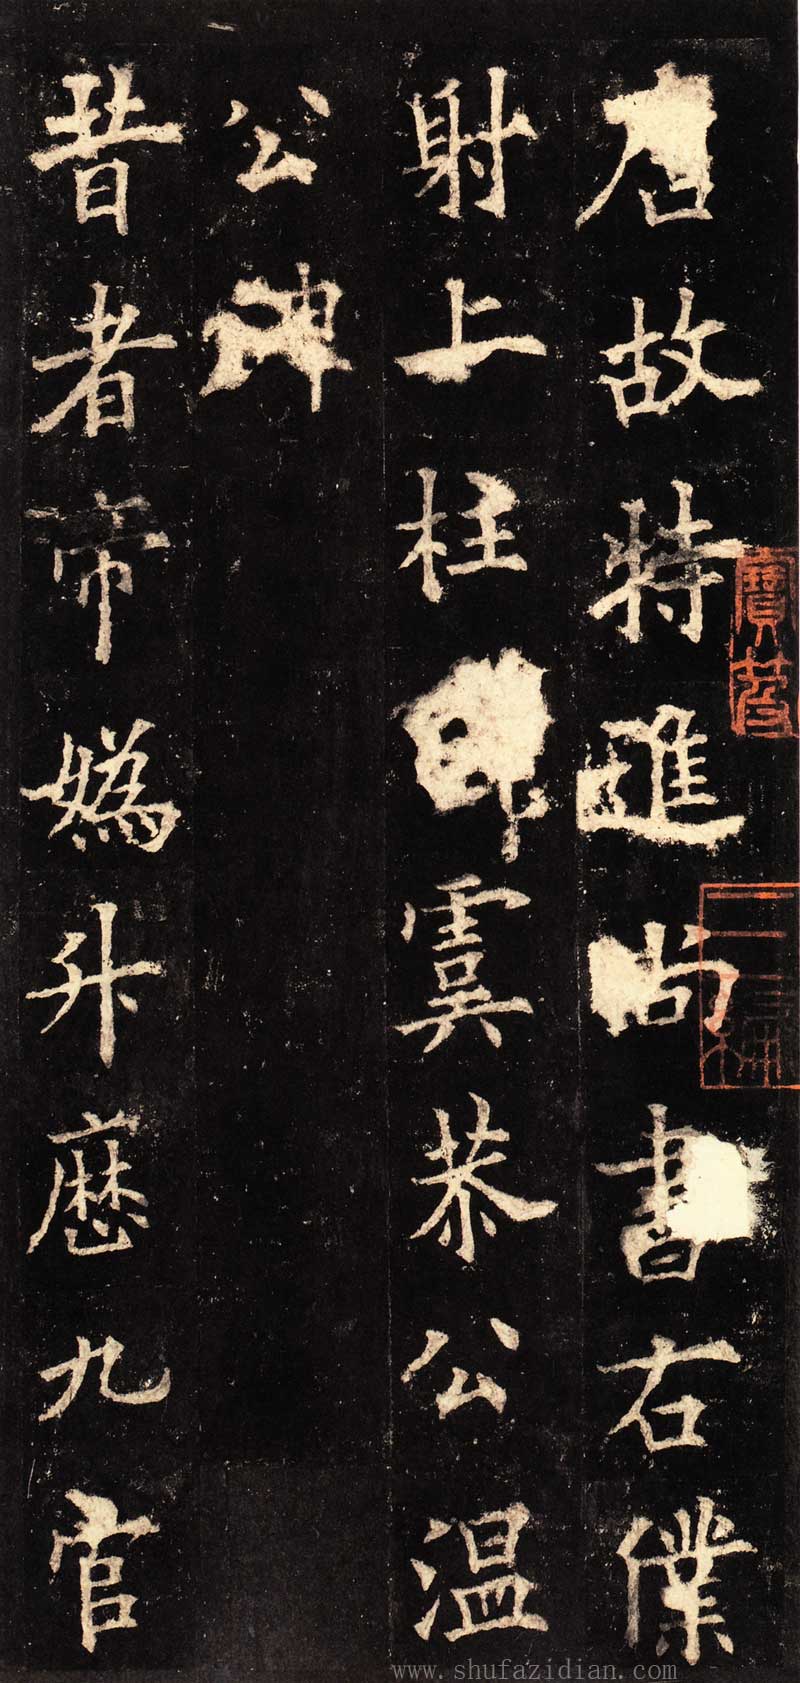 唐故特進尚書右僕
射上柱虞恭公温
公碑
昔者帝媯升歷九官
www.shufazidian.com